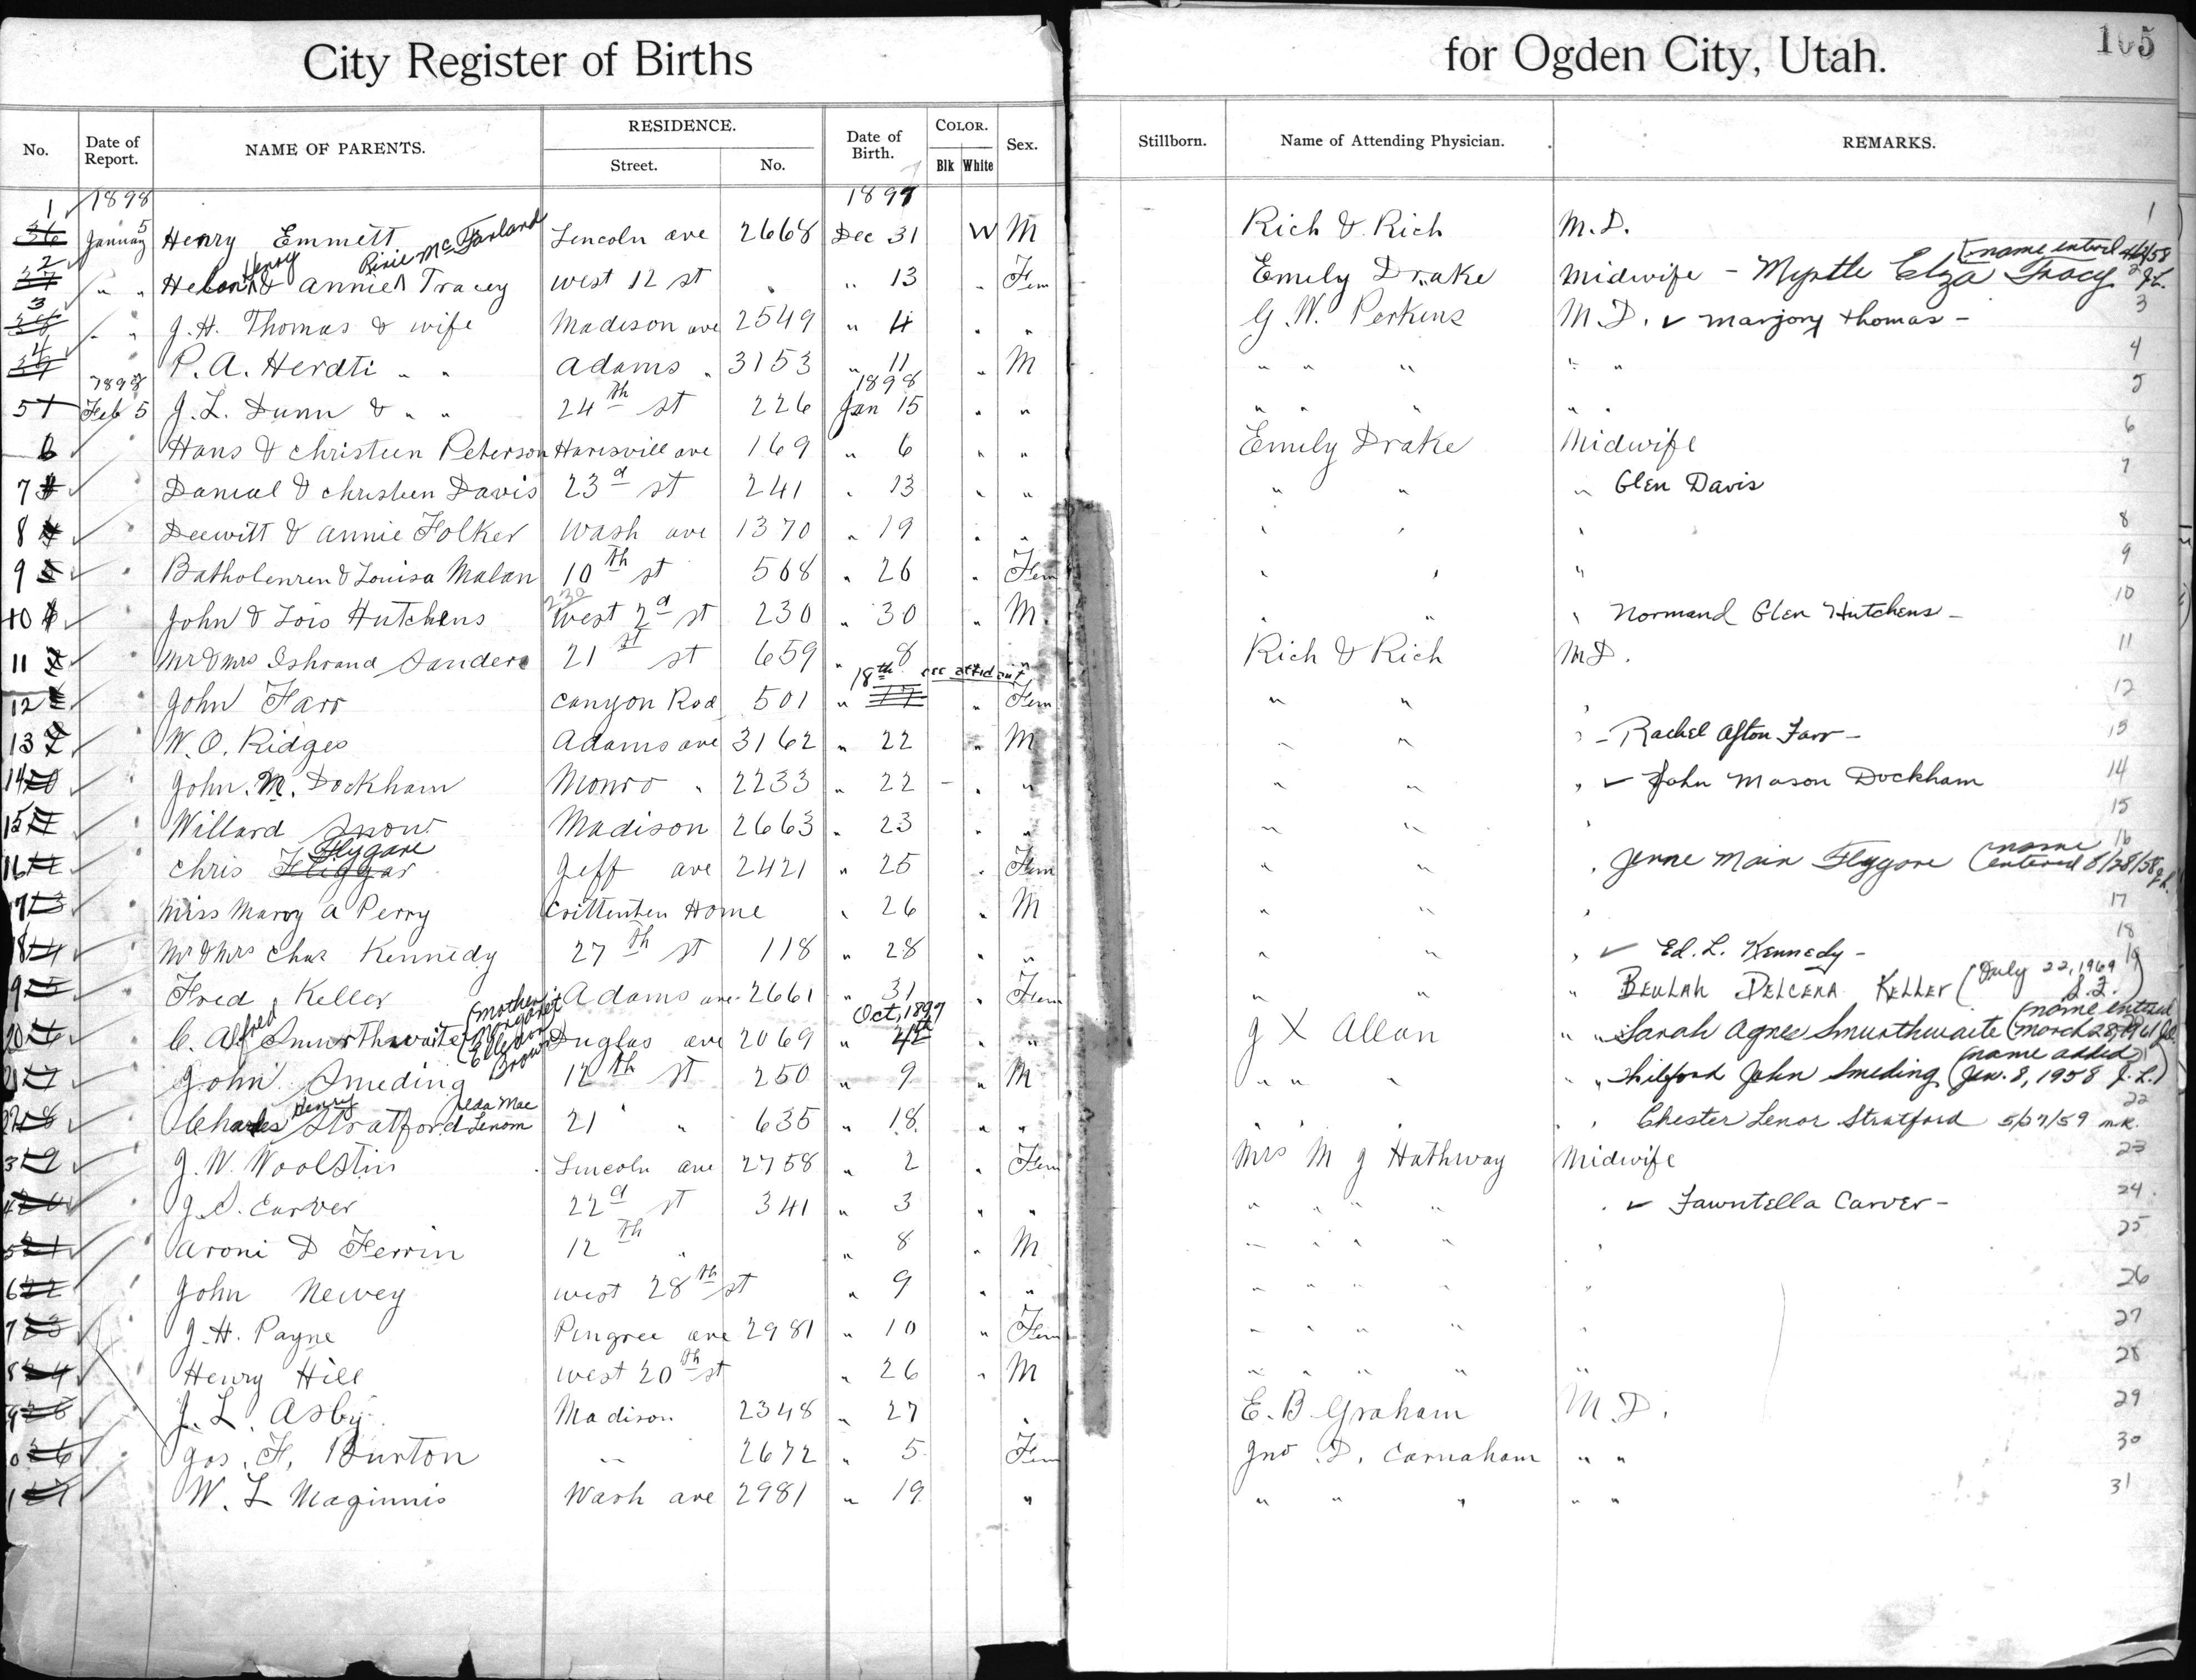 City Register of Births for Ogden City, Utah. 105
No. Date of Report. NAME OF PARENTS. RESIDENCE. Street. No. Date of Birth. COLOR. Blk White Sex. Stillborn. Name of Attending Physician. REMARKS.
1898 1897
1 January 5 Henry Emmett Lincoln ave 2668 Dec 31 W M Rich & Rich M.D. 1
Henry Rixie McFarland (name entered
2 " " & Annie Tracey West 12 st " 13 " Fem Emily Drake Midwife - Myrtle Elza Tracy 2 J.L.
3 " " J.H. Thomas & wife Madison ave 2549 " 4 " " G.W. Perkins M.D. ✓ Marjory Thomas - 3
4 " P.A. Herdti " " Adams " 3153 " 11 " M " " " " " 4
1898 1898
5 Feb 5 J.L. Dunn & " " 24th st 226 Jan 15 " " " " " " " 5
6 " Hans & Christeen Peterson Harisvill ave 169 " 6 " " Emily Drake Midwife 6
7 " Danial & Christeen Davis 23d st 241 " 13 " " " " " Glen Davis 7
8 " Deewitt & Annie Folker Wash ave 1370 " 19 " " " " " 8
9 " Batholenren & Louisa Malan 10th st 568 " 26 " Fem " " " 9
230
10 " John & Lois Hutchens West 2d st 230 " 30 " M. " " " Normand Glen Hutchens - 10
11 " Mr & Mrs Sanders 21st st 659 " 8 " " Rich & Rich M.D. 11
18th
12 " John Farr Canyon Rod 501 " 17 " Fem " " " 12
13 " W.O. Ridges Adams ave 3162 " 22 " M " " " - Rachel Afton Farr - 13
14 " John M. Dockham Monro " 2233 " 22 - " " " " " ✓ John Mason Dockham 14
15 " Willard Snow Madison 2663 " 23 " " " " " 15
Flygare name
16 " Chris Fliggar Jeff ave 2421 " 25 " Fem " " " Jenne Main Flygare (entered 8/28/58 J.L. 16
17 " Miss Marry A Perry Crittenten Home " 26 " M " " " 17
18 " Mr & Mrs Chas Kennedy 27th st 118 " 28 " " " " " ✓ Ed. L. Kennedy - 18
19 " Fred Keller Adams ave 2661 " 31 " Fem " " " Beulah Delcena Keller (July 22, 1969 19
(mother: Margaret Elleson Brown Oct, 1897 (name entered
20 " C. Alfred Smurthwaite Duglas ave 2069 " 4th " " J X Allan " " Sarah Agnes Smurthwaite (March 28, 1961
(name added
21 " John Smeding 12th st 250 " 9 " M " " " " " John Smeding (Jan. 8, 1958 J.L.)
Henry Leda Mae Lenom
22 " Charles Stratford 21 " 635 " 18 " " " " " " " Chester Lenor Stratford 5/27/59 m.k. 22
3 " J.W. Woolstin Lincoln ave 2758 " 2 " Fem Mrs M J Hathway Midwife 23
4 " J.S. Carver 22d st 341 " 3 " " " " " " " ✓ Fawntella Carver - 24
5 " Aroni D Ferrin 12th " " 8 " M " " " " " 25
6 " John Newey West 28th st " 9 " " " " " " " 26
7 " J.H. Payne Pingree ave 2981 " 10 " Fem " " " " " 27
8 " Henry Hill West 20th st " 26 " M " " " " " 28
9 " J.L. Asby Madison 2348 " 27 " E.B Graham M.D. 29
0 " Jos. F. Burton " 2672 " 5 Fem Jno. D. Carnaham " " 30
1 " W.L Maginnis Wash ave 2981 " 19 " " " " " " 31